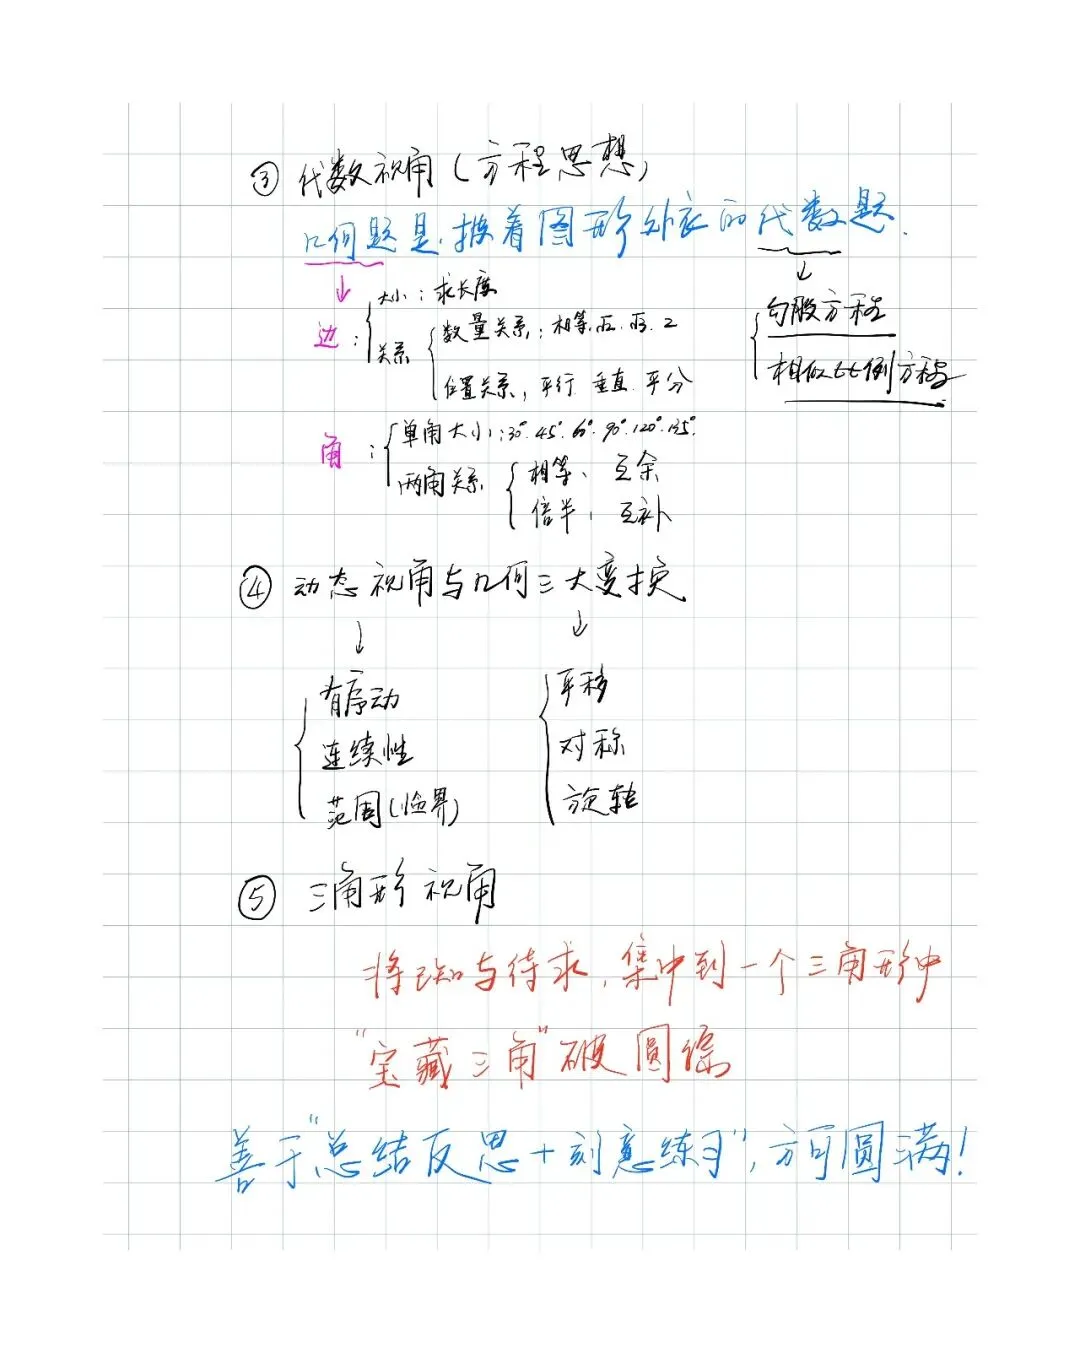 ③ 代数视角(方程思想)
几何题是披着图形外衣的代数题.
边:
大小: 求长度
关系
数量关系: 相等.√2.√3.2
位置关系, 平行 垂直 平分
勾股方程
相似比例方程
角:
单角大小: 30°.45°.60°.90°.120°.135°.
两角关系
相等、互余
倍半, 互补
④ 动态视角与几何三大变换
有序动
连续性
范围(临界)
平移
对称
旋转
⑤ 三角形视角
将已知与待求, 集中到一个三角形中
"宝藏三角"破圆缘
善于"总结反思+刻意练习", 方可圆满!